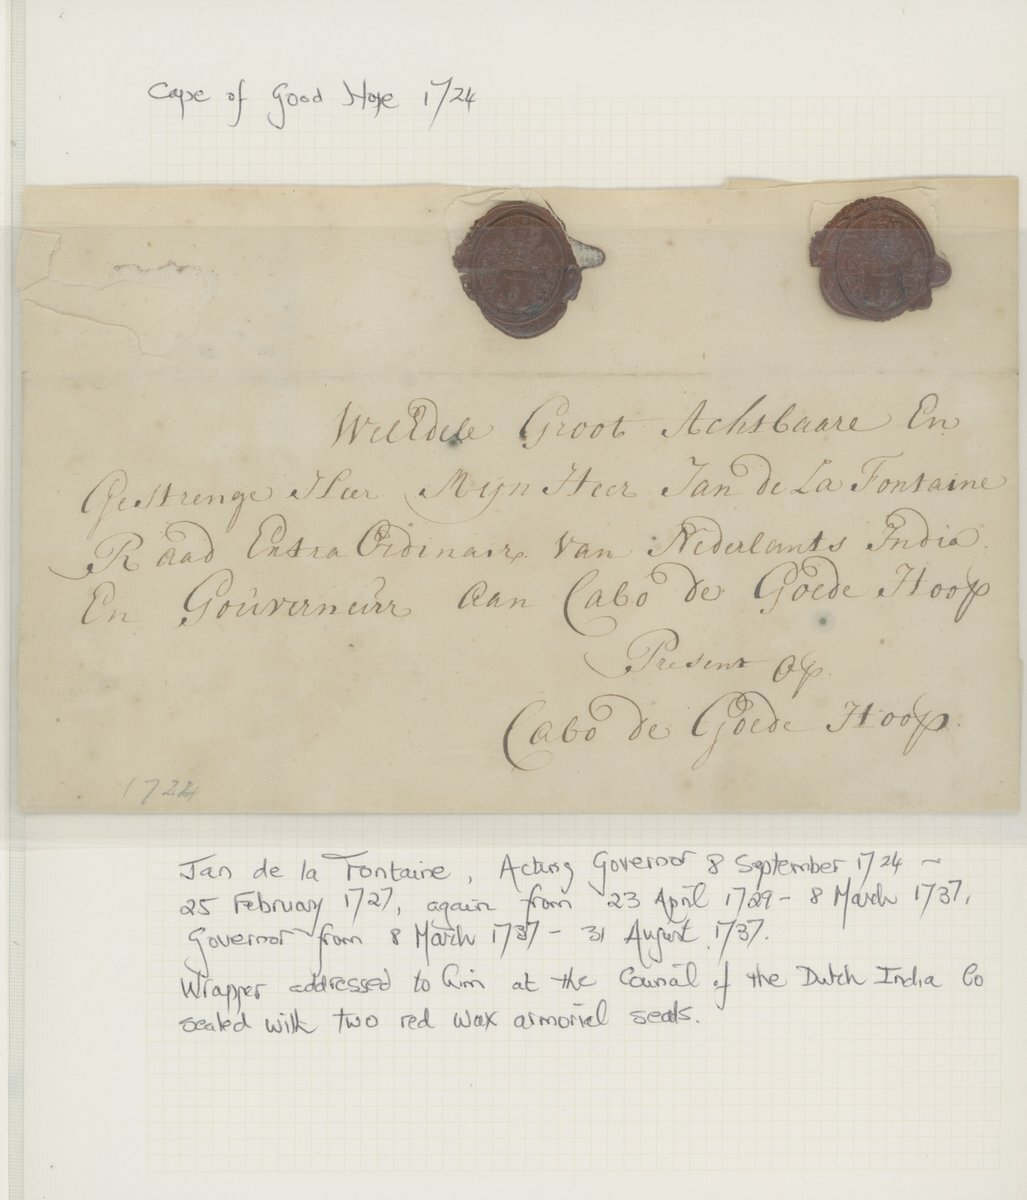 Cape of Good Hope 1724
WelEdele Groot Achtbaare En
Gestrenge Heer Mijn Heer Jan de La Fontaine
Raad Extra Ordinair van Nederlants India
En Gouverneur aan Cabo de Goede Hoop
Present op
Cabo de Goede Hoop.
1724
Jan de la Fontaine, Acting Governor 8 September 1724 -
25 February 1727, again from 23 April 1729 - 8 March 1737,
Governor from 8 March 1737 - 31 August 1737.
Wrapper addressed to him at the Council of the Dutch India Co
sealed with two red wax armorial seals.